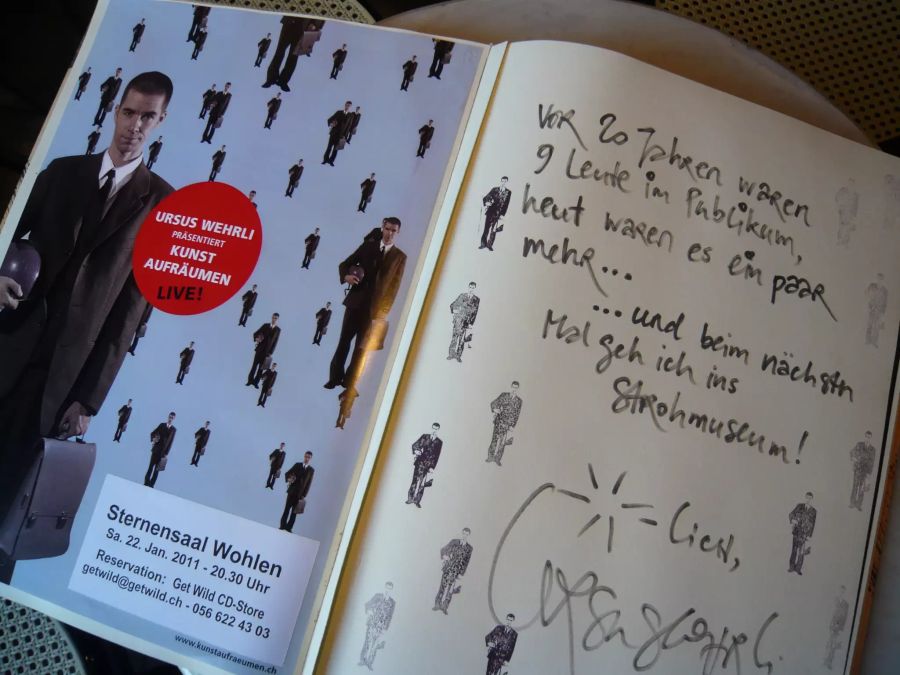 URSUS WEHRLI
PRÄSENTIERT
KUNST
AUFRÄUMEN
LIVE!
Sternensaal Wohlen
Sa. 22. Jan. 2011 - 20.30 Uhr
Reservation: Get Wild CD-Store
getwild@getwild.ch - 056 622 43 03
www.kunstaufraeumen.ch
Vor 20 Jahren waren
9 Leute im Publikum,
heut waren es ein paar
mehr...
...und beim nächstn
Mal geh ich ins
Strohmuseum!